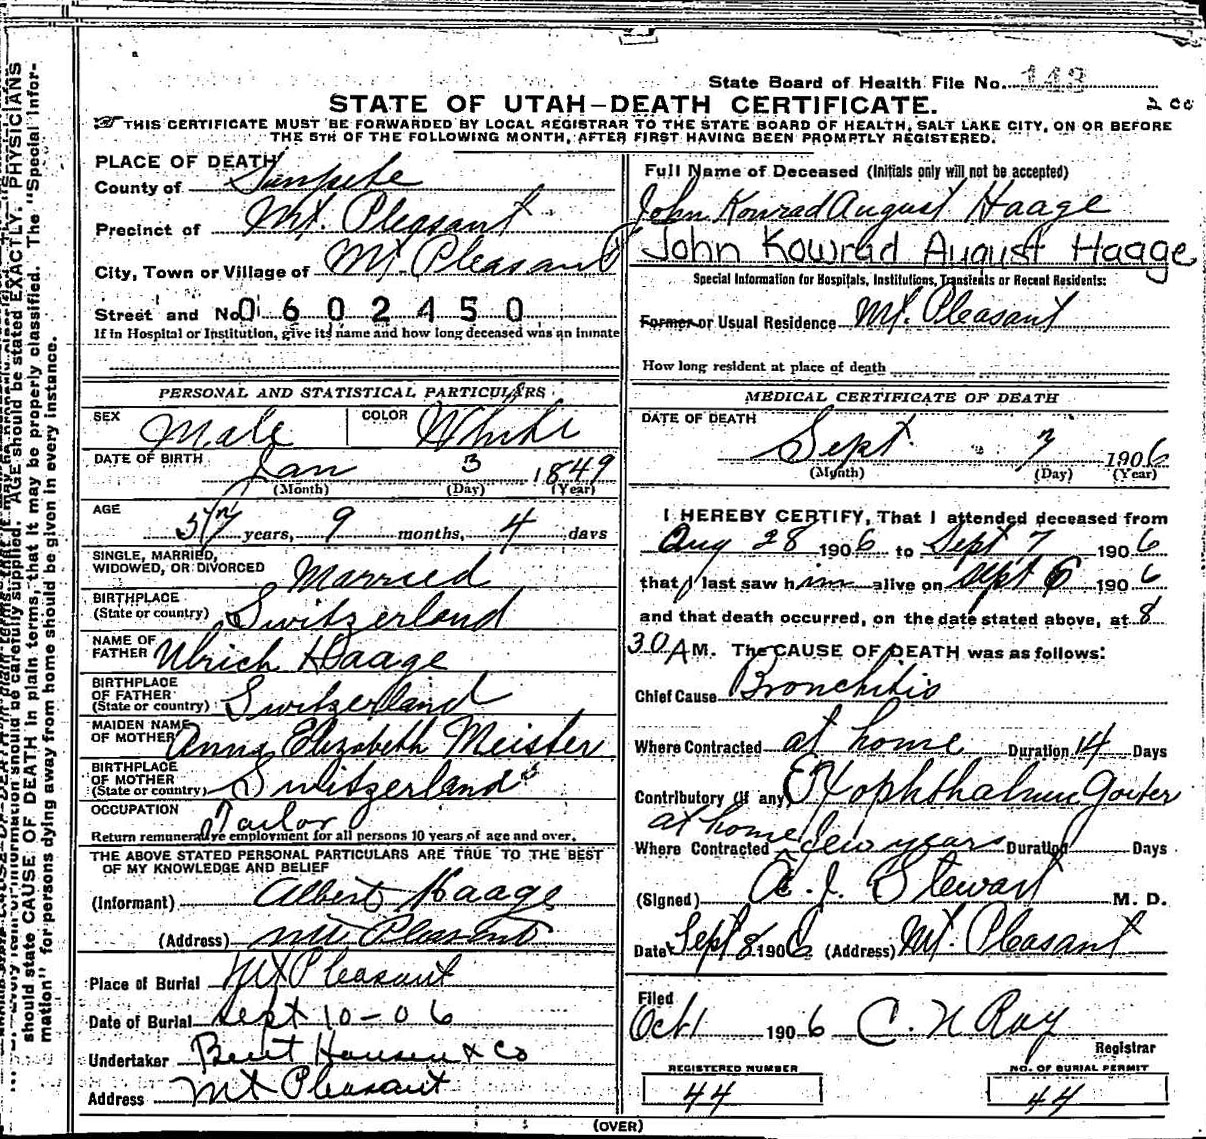 State Board of Health File No. 143
2 cc
STATE OF UTAH—DEATH CERTIFICATE.
THIS CERTIFICATE MUST BE FORWARDED BY LOCAL REGISTRAR TO THE STATE BOARD OF HEALTH, SALT LAKE CITY, ON OR BEFORE
THE 5TH OF THE FOLLOWING MONTH, AFTER FIRST HAVING BEEN PROMPTLY REGISTERED.
PLACE OF DEATH
County of Sanpete
Precinct of Mt. Pleasant
City, Town or Village of Mt. Pleasant
Street and No. 0602450
If in Hospital or Institution, give its name and how long deceased was an inmate
PERSONAL AND STATISTICAL PARTICULARS
SEX Male COLOR White
DATE OF BIRTH Jan 3 1849
(Month) (Day) (Year)
AGE 57 years, 9 months, 4 days
SINGLE, MARRIED,
WIDOWED, OR DIVORCED Married
BIRTHPLACE
(State or country) Switzerland
NAME OF
FATHER Ulrich Haage
BIRTHPLACE
OF FATHER
(State or country) Switzerland
MAIDEN NAME
OF MOTHER Anna Elizabeth Meister
BIRTHPLACE
OF MOTHER
(State or country) Switzerland
OCCUPATION Tailor
Return remunerative employment for all persons 10 years of age and over.
THE ABOVE STATED PERSONAL PARTICULARS ARE TRUE TO THE BEST
OF MY KNOWLEDGE AND BELIEF
(Informant) Albert Haage
(Address) Mt. Pleasant
Place of Burial Mt Pleasant
Date of Burial Sept 10-06
Undertaker Bent Hansen & Co
Address Mt Pleasant
Full Name of Deceased (Initials only will not be accepted)
John Konrad August Haage
John Kowrad August Haage
Special Information for Hospitals, Institutions, Transients or Recent Residents:
Former or Usual Residence Mt. Pleasant
How long resident at place of death
MEDICAL CERTIFICATE OF DEATH
DATE OF DEATH
Sept. 7 1906
(Month) (Day) (Year)
I HEREBY CERTIFY, That I attended deceased from
Aug 28 1906 to Sept 7 1906
that I last saw him alive on Sept 6 1906
and that death occurred, on the date stated above, at 8
30 A M. The CAUSE OF DEATH was as follows:
Chief Cause Bronchitis
Where Contracted at home Duration 14 Days
Contributory (if any) Exophthalmic Goiter
at home
Where Contracted few years Duration Days
(Signed) A. J. Stewart M. D.
Date Sept 8 1906 (Address) Mt. Pleasant
Filed
Oct 1 1906 C. N Ray
Registrar
REGISTERED NUMBER
44
NO. OF BURIAL PERMIT
44
(OVER)
information should be carefully supplied. AGE should be stated EXACTLY. PHYSICIANS
should state CAUSE OF DEATH in plain terms, that it may be properly classified. The "Special Infor-
mation" for persons dying away from home should be given in every instance.